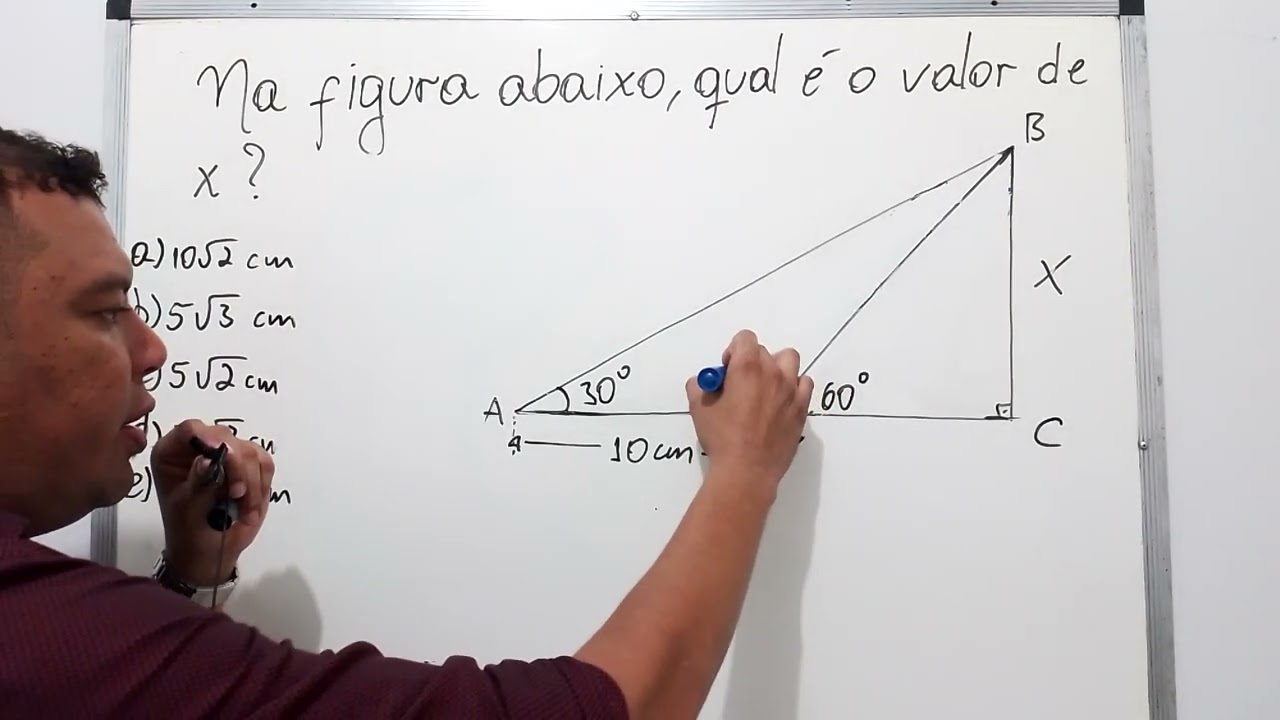 Na figura abaixo, qual é o valor de
x ?
a) 10√2 cm
b) 5√3 cm
5√2 cm
e)
B
X
30°
60°
A
C
10 cm